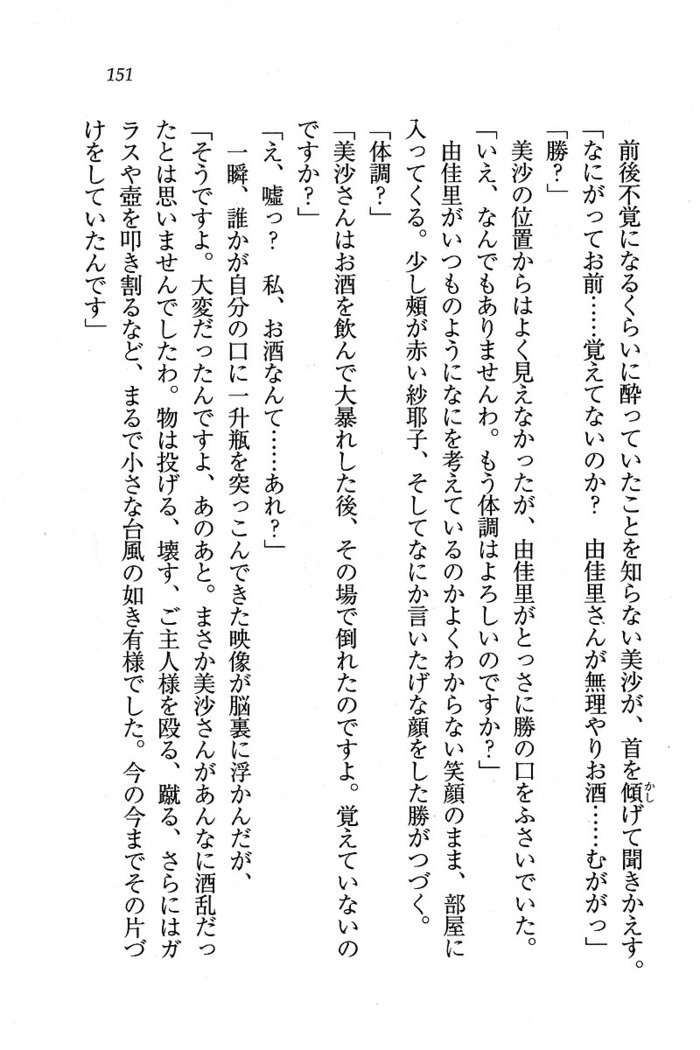 151
前後不覚になるくらいに酔っていたことを知らない美沙が、首を傾げて聞きかえす。
かし
「なにがってお前……覚えてないのか？　由佳里さんが無理やりお酒……むががっ」
「勝？」
美沙の位置からはよく見えなかったが、由佳里がとっさに勝の口をふさいでいた。
「いえ、なんでもありませんわ。もう体調はよろしいのですか？」
由佳里がいつものようになにを考えているのかよくわからない笑顔のまま、部屋に
入ってくる。少し頰が赤い紗耶子、そしてなにか言いたげな顔をした勝がつづく。
「体調？」
「美沙さんはお酒を飲んで大暴れした後、その場で倒れたのですよ。覚えていないの
ですか？」
「え、嘘っ？　私、お酒なんて……あれ？」
一瞬、誰かが自分の口に一升瓶を突っこんできた映像が脳裏に浮かんだが、
「そうですよ。大変だったんですよ、あのあと。まさか美沙さんがあんなに酒乱だっ
たとは思いませんでしたわ。物は投げる、壊す、ご主人様を殴る、蹴る、さらにはガ
ラスや壺を叩き割るなど、まるで小さな台風の如き有様でした。今の今までその片づ
けをしていたんです」